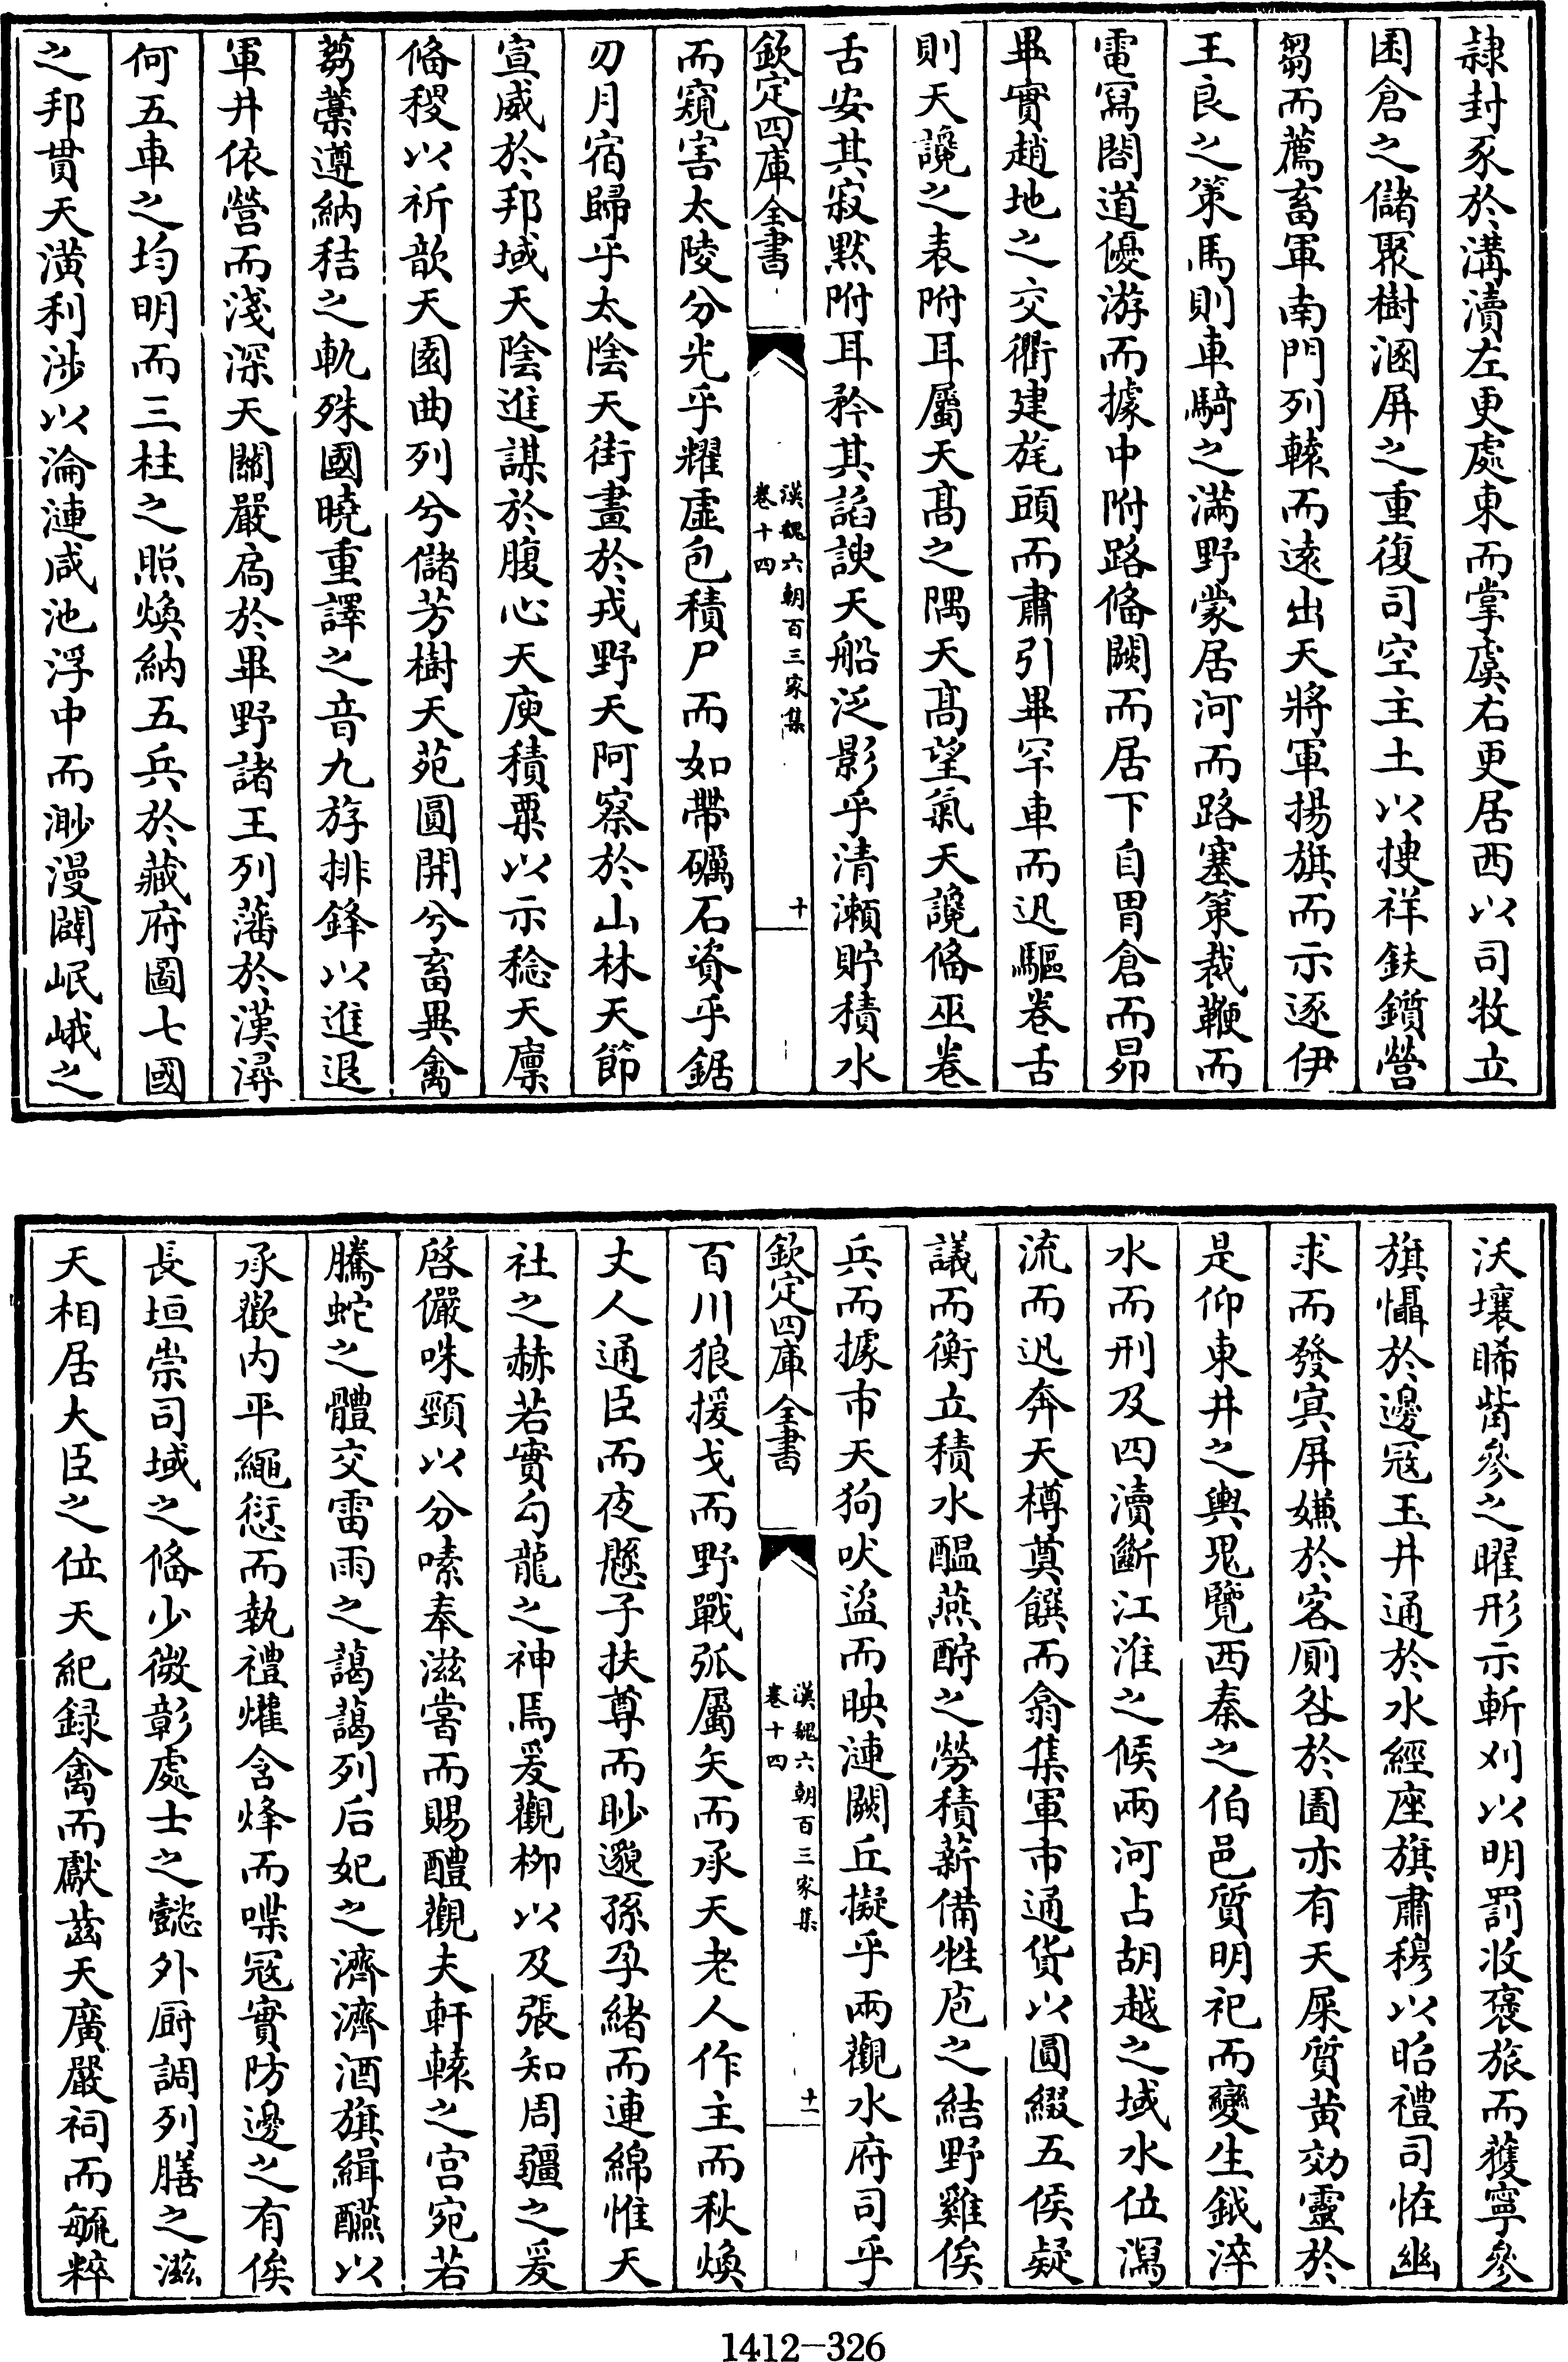 隷封豕於溝瀆左更處東而掌虞右更居西以司牧立
囷倉之儲聚樹溷屏之重復司空主土以搜祥鈇鑕營
芻而薦畜軍南門列轅而遠出天將軍揚旗而示逐伊
王良之策馬則車騎之滿野蒙居河而路塞策裁鞭而
電寫閣道優游而據中附路俻闕而居下自胃倉而昴
畢實趙地之交衢建旄頭而肅引畢罕車而迅驅卷舌
則天讒之表附耳屬天髙之隅天髙望氣天讒俻巫卷
舌安其寂黙附耳矜其諂諛天船泛影乎清瀬貯積水
欽定四庫全書
漢魏六朝百三家集
卷十四
十
而窺害太陵分光乎耀虛包積尸而如帶礪石資乎鋸
刃月宿歸乎太陰天街畫於戎野天阿察於山林天節
宣威於邦域天陰進謀於腹心天庾積粟以示稔天廪
俻稷以祈歆天園曲列兮儲芳樹天苑圓開兮畜異禽
芻藁遵納秸之軌殊國曉重譯之音九斿排鋒以進退
軍井依營而淺深天關嚴扃於畢野諸王列藩於漢潯
何五車之均明而三柱之照煥納五兵於藏府圖七國
之邦貫天潢利涉以淪漣咸池浮中而渺漫闢岷峨之
沃壤睎觜參之曜形示斬刈以明罰收褒旅而獲寧參
旗懾於邊冦玉井通於水經座旗肅穆以昭禮司怪幽
求而發寅屏嫌於客厠咎於圊亦有天屎質黄効靈於
是仰東井之輿鬼覽西秦之伯邑質明祀而變生鉞淬
水而刑及四瀆斷江淮之候兩河占胡越之域水位瀉
流而迅奔天樽奠饌而翕集軍市通貨以圓綴五侯疑
議而衡立積水醖燕酧之勞積薪備牲庖之結野雞俟
兵而據市天狗吠盜而映漣闕丘擬乎兩觀水府司乎
欽定四庫全書
漢魏六朝百三家集
卷十四
十一
百川狼援戈而野戰弧屬矢而承天老人作主而秋煥
丈人通臣而夜懸子扶尊而眇邈孫孕緒而連綿惟天
社之赫若實勾龍之神焉爰觀栁以及張知周疆之爰
啓儼咮頸以分嗉奉滋嘗而賜醴觀夫軒轅之宫宛若
騰蛇之體交雷雨之藹藹列后妃之濟濟酒旗緝醼以
承歡内平繩愆而執禮爟含烽而喋冦實防邊之有俟
長垣崇司域之俻少微彰處士之懿外厨調列膳之滋
天相居大臣之位天紀録禽而獻齒天廣嚴祠而毓粹
1412-326